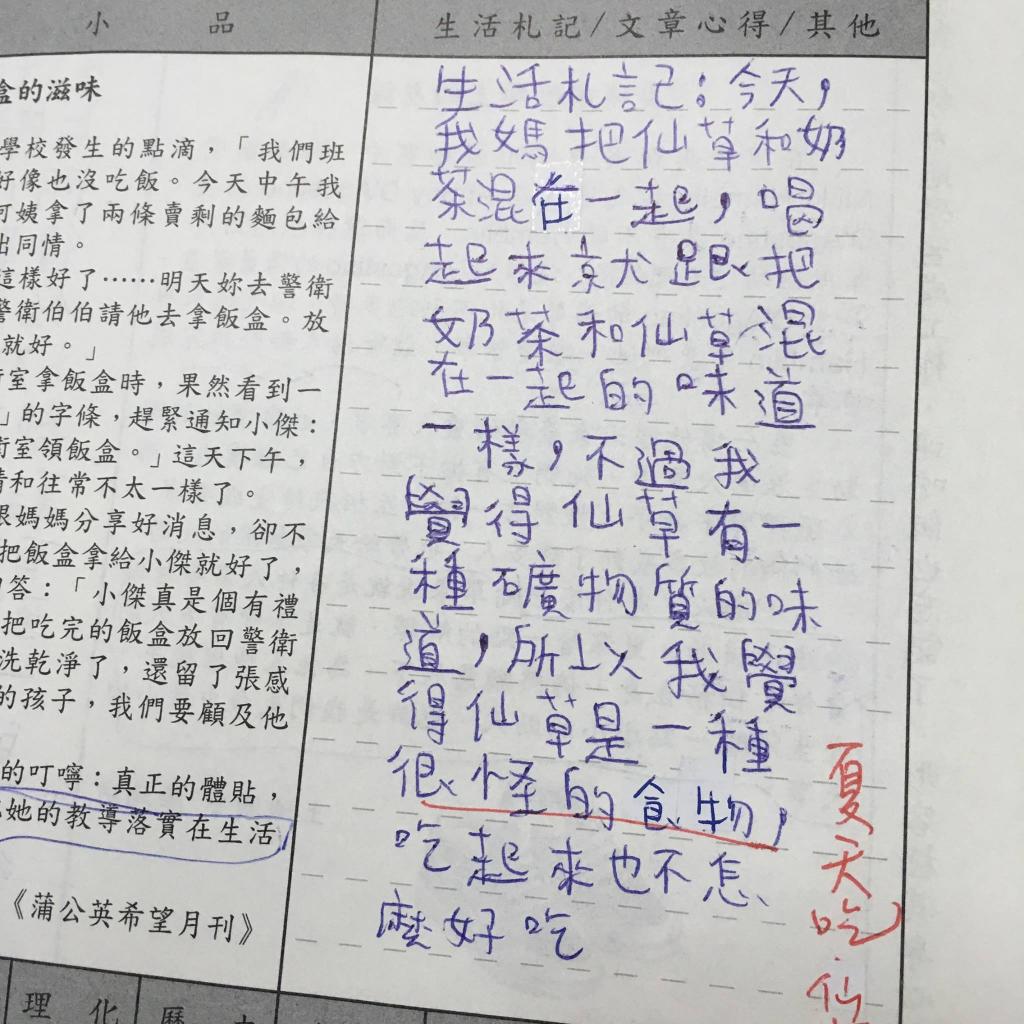 小品
生活札記/文章心得/其他
盒的滋味
學校發生的點滴，「我們班
好像也沒吃飯。今天中午我
阿姨拿了兩條賣剩的麵包給
出同情。
這樣好了……明天妳去警衛
警衛伯伯請他去拿飯盒。放
就好。」
衛室拿飯盒時，果然看到一
」的字條，趕緊通知小傑：
衛室領飯盒。」這天下午，
情和往常不太一樣了。
跟媽媽分享好消息，卻不
把飯盒拿給小傑就好了，
回答：「小傑真是個有禮
把吃完的飯盒放回警衛
洗乾淨了，還留了張感
的孩子，我們要顧及他
的叮嚀：真正的體貼，
她的教導落實在生活
《蒲公英希望月刊》
生活札記：今天，
我媽把仙草和奶
茶混在一起，喝
起來京犬跟把
奶茶和仙草混
在一起的味道
一樣，不過我
覺得仙草有一
種礦物質的味
道，所以我覺
得仙草是一種
很怪的食物，
吃起來也不怎
麼好吃
夏天吃仙
理化
歷